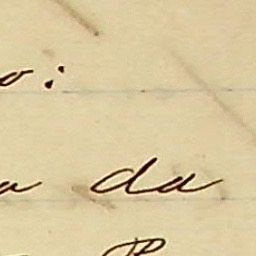 o:
a da